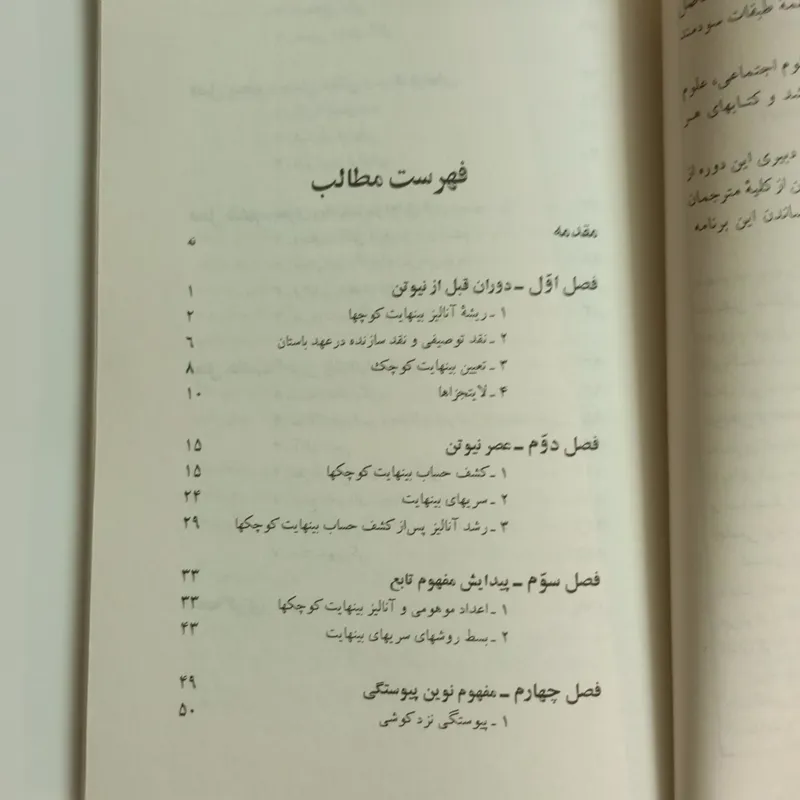 فهرست مطالب
مقدمه نه
فصل اوّل ــ دوران قبل از نیوتن ۱
۱ ـ ریشهٔ آنالیز بینهایت کوچها ۲
۲ ـ نقد توصیفی و نقد سازنده در عهد باستان ۶
۳ ـ تعیین بینهایت کوچک ۸
۴ ـ لایتجزاها ۱۰
فصل دوّم ــ عصر نیوتن ۱۵
۱ ـ کشف حساب بینهایت کوچکها ۱۵
۲ ـ سریهای بینهایت ۲۴
۳ ـ رشد آنالیز پس از کشف حساب بینهایت کوچکها ۲۹
فصل سوّم ــ پیدایش مفهوم تابع ۳۳
۱ ـ اعداد موهومی و آنالیز بینهایت کوچکها ۳۳
۲ ـ بسط روشهای سریهای بینهایت ۴۳
فصل چهارم ــ مفهوم نوین پیوستگی ۴۹
۱ ـ پیوستگی نزد کوشی ۵۰
طبقات سودمند
اجتماعی، علوم
و کتابهای هر
دبیری این دوره از
از کلیهٔ مترجمان
این برنامه